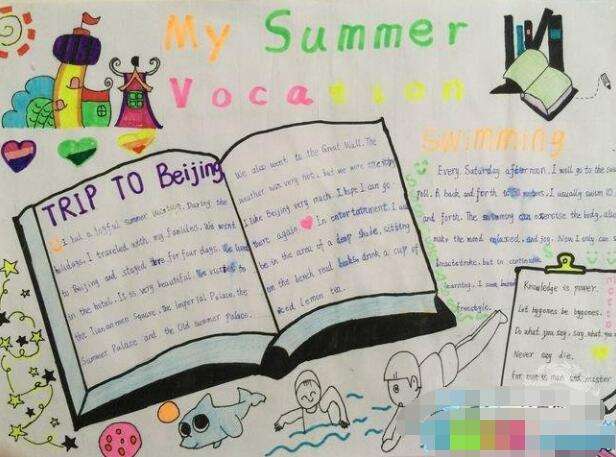 My Summer
Vocation
TRIP TO Beijing
I had a summer During the
I traveled with my families. We went
to Beijing and stayed for four days.
in the hotel. It is very beautiful.
the Tiananmen Square, the Imperial Palace, the
Summer Palace and the Old summer Palace.
We also went to the Great Wall. The
weather was very hot, but we were
I like Beijing very much. I hope I can go
there again. In entertainment, I
be in the area of a deep shade, sitting
on the bench read drink a cup of
iced Lemon tea.
Swimming
Every Saturday afternoon, I will go to the
Pall. A back and forth I usually swim
and forth. The swimming can exercise the body, also
make the mood relaxed, and joy. Now I only can
but in
learning, I
freestyle.
Knowledge is power.
Let bygones be bygones.
Do what you say, say what you
Never say die.
man